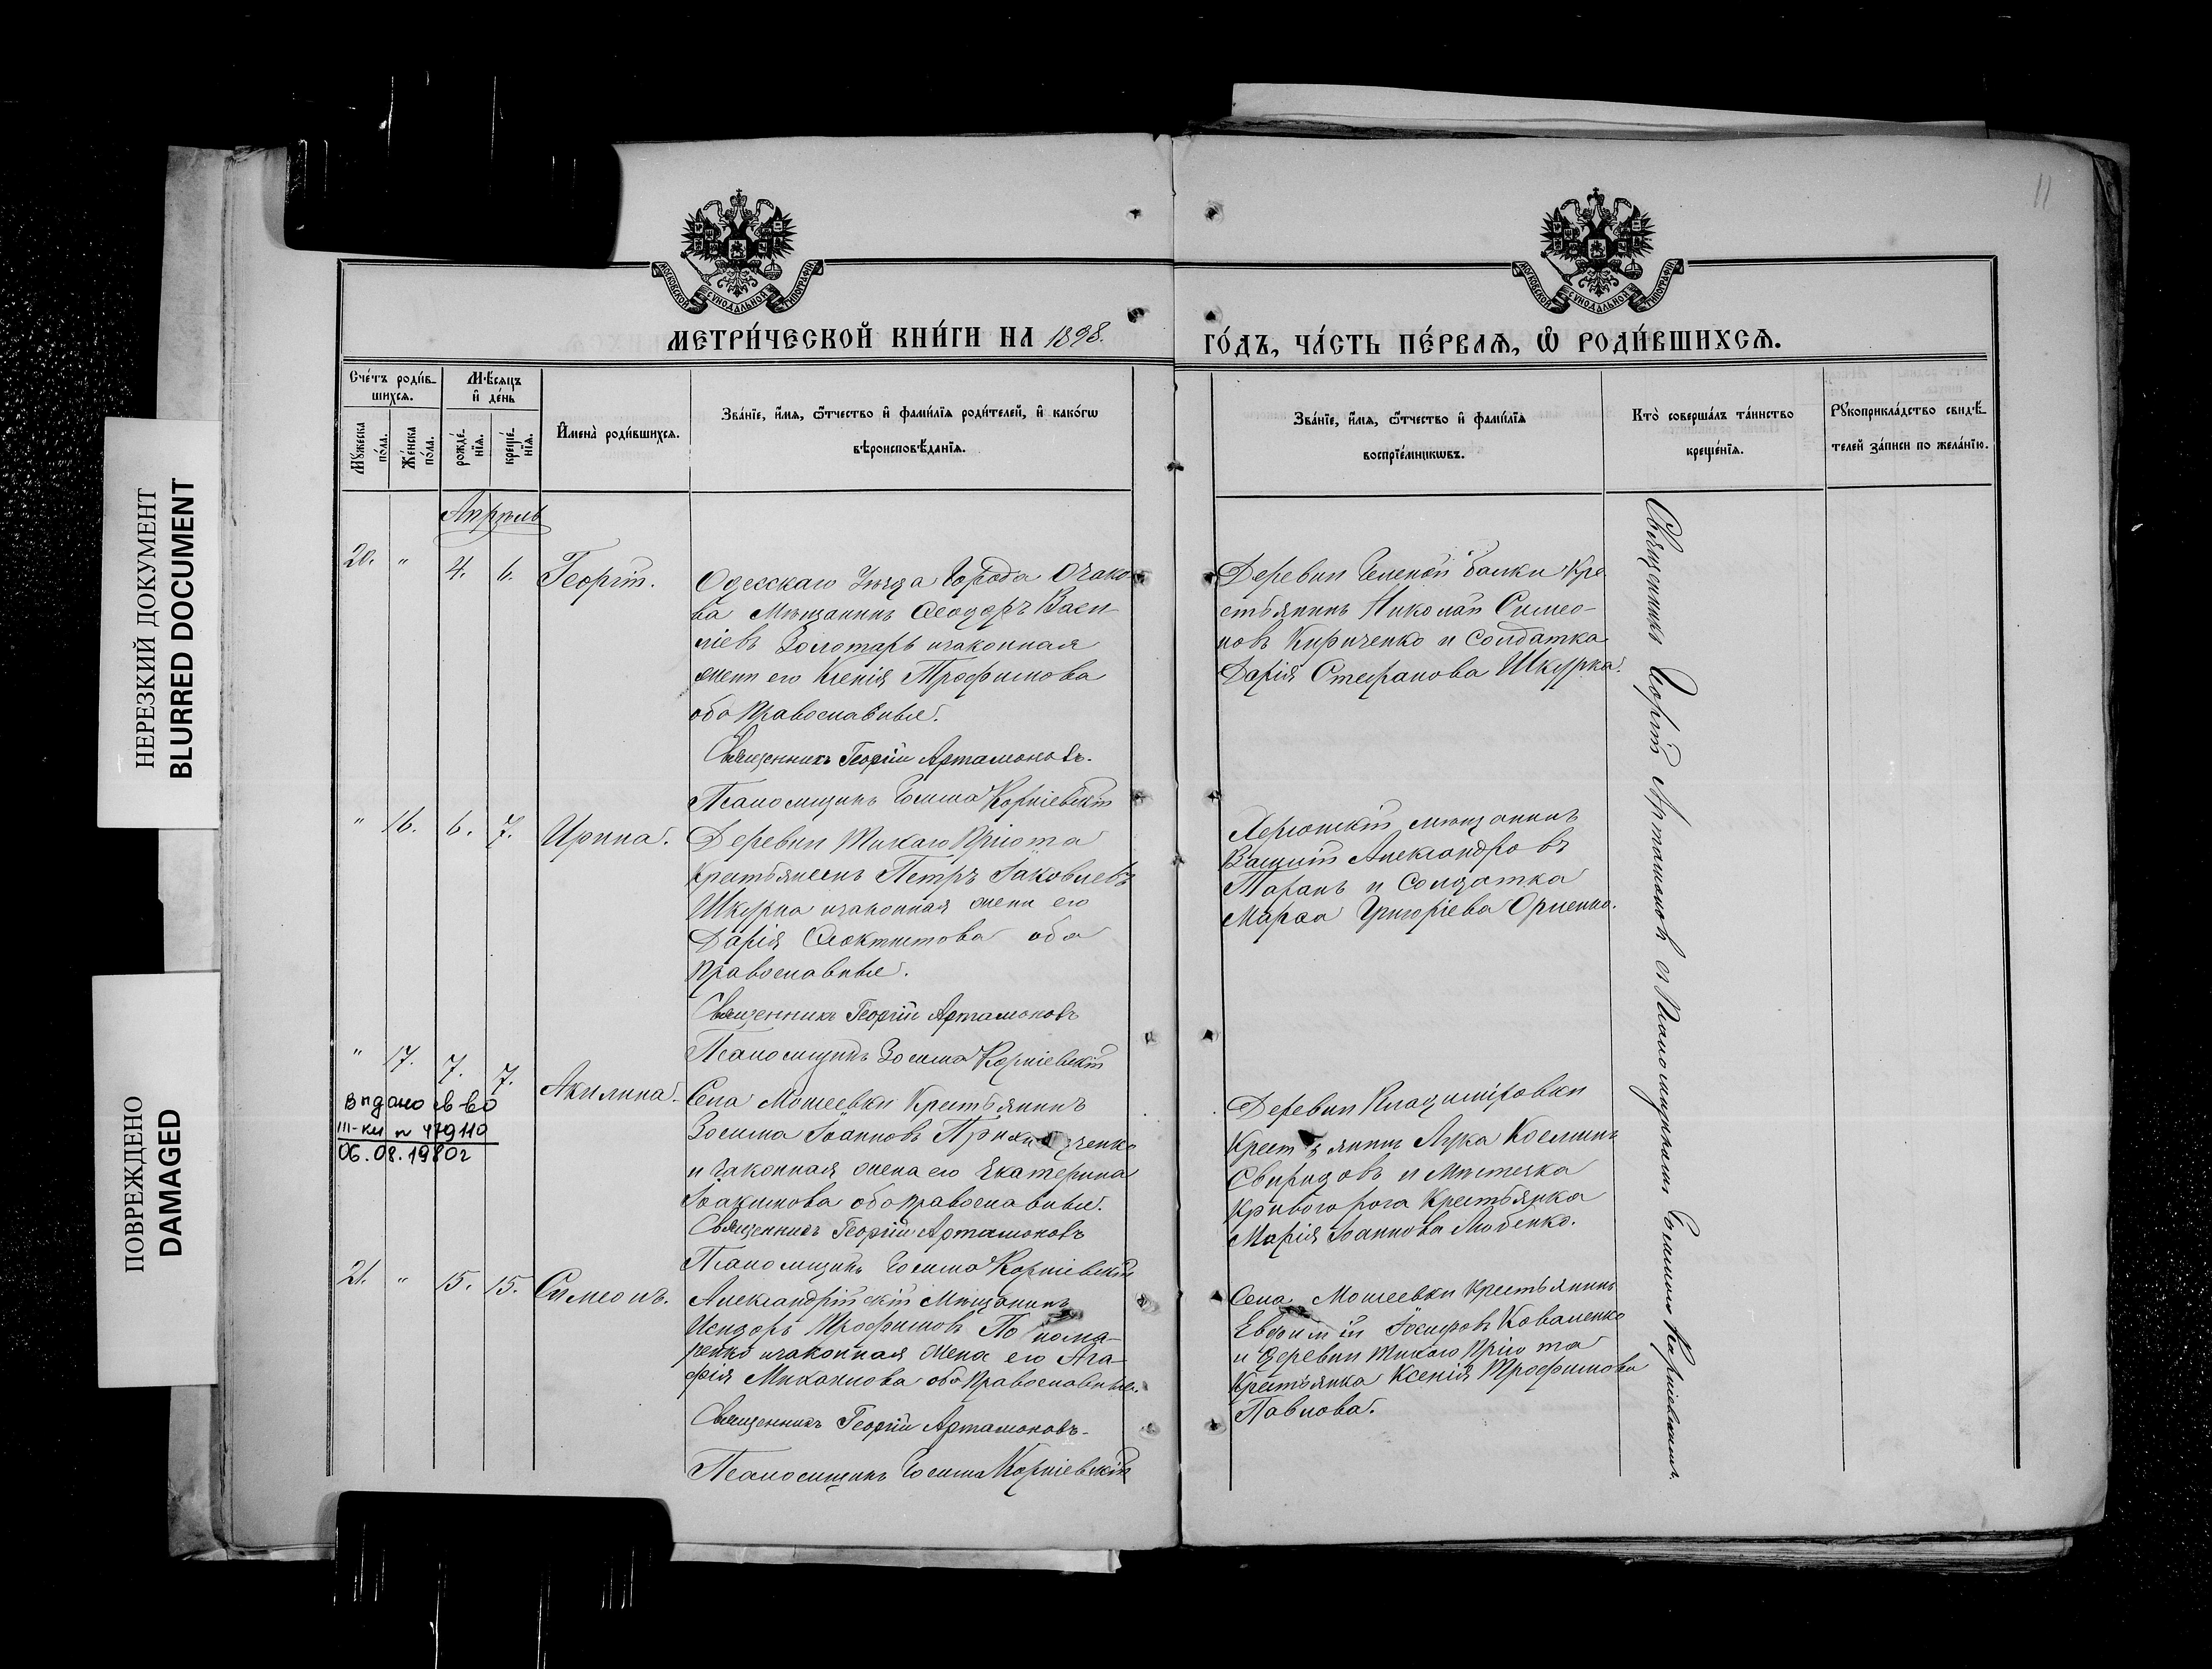 НЕРЕЗКИЙ ДОКУМЕНТ
BLURRED DOCUMENT
ПОВРЕЖДЕНО
DAMAGED
11
МОСКОВСКОЙ СѴНОДАЛЬНОЙ ТИПОГРАФІИ
МОСКОВСКОЙ СѴНОДАЛЬНОЙ ТИПОГРАФІИ
МЕТРИ́ЧЕСКОЙ КНИ́ГИ НА 1898.
ГО́ДЪ, ЧА́СТЬ ПЕ́РВАѦ, Ѡ҆ РОДИ́ВШИХСѦ.
Сче́тъ роди́в-
шихсѧ.
Мꙋ́жеска
по́ла.
Же́нска
по́ла.
Мѣ́сяцъ
и҆ де́нь
рожде́-
нїѧ.
креще́-
нїѧ.
И҆мена̀ роди́вшихсѧ.
Зва́нїе, и҆́мѧ, ѻ҆́тчество и҆ фами́лїѧ роди́телей, и҆ како́гѡ
вѣроисповѣ́данїѧ.
Зва́нїе, и҆́мѧ, ѻ҆́тчество и҆ фами́лїѧ
воспрїе́мникѡвъ.
Кто̀ соверша́лъ та́инство
креще́нїѧ.
Рꙋкоприкла́дство свидѣ́-
телей за́писи по жела́нїю.
Апрѣль
20. " 4. 6. Георгій.
Одесскаго Уѣзда Города Очако-
ва Мѣщанинъ Ѳеодоръ Васи-
ліевъ Золотарь и законная
жена его Ксенія Трофимова
оба православные.
Священникъ Георгій Артамоновъ.
Псаломщикъ Зосима Корніевскій
Деревни Зеленой балки Кре
стьянинъ Николай Симео-
новъ Кириченко и Солдатка
Дарія Стефанова Шкурка.
" 16. 6. 7. Ирина.
Деревни Тихаго Пріюта
Крестьянинъ Петръ Іаковлевъ
Шкурка и законная жена его
Дарія Ѳеоктистова оба
православные.
Священникъ Георгій Артамоновъ
Псаломщикъ Зосима Корніевскій
Херсонскій мѣщанинъ
Василій Александровъ
Таранъ и Солдатка
Марѳа Григоріева
" 17. 7. 7. Акилина.
Видано св-во
III-КИ № 479110
06.08.1980г
Села Мошеевки Крестьянинъ
Зосима Іоанновъ
и законная жена его Екатерина
Іоакимова оба православные.
Священникъ Георгій Артамоновъ
Псаломщикъ Зосима Корніевскій
Деревни Владимировки
Крестьянинъ Лука Косминъ
Свиридовъ и Мѣстечка
Кривого рога Крестьянка
Марія Іоаннова Любенко.
21. " 15. 15. Симеонъ.
Александрійскій Мѣщанинъ
Исидоръ Трофимовъ Понома-
ренко и законная жена его Ага-
фія Михаилова оба Православные.
Священникъ Георгій Артамоновъ.
Псаломщикъ Зосима Корніевскій
Села Мошеевки Крестьянинъ
Евфимій Іосифовъ Коваленко
и деревни Тихаго Пріюта
Крестьянка Ксенія Трофимова
Павлова.
Священникъ Георгій Артамоновъ съ Псаломщикомъ Зосимою Корніевскимъ.